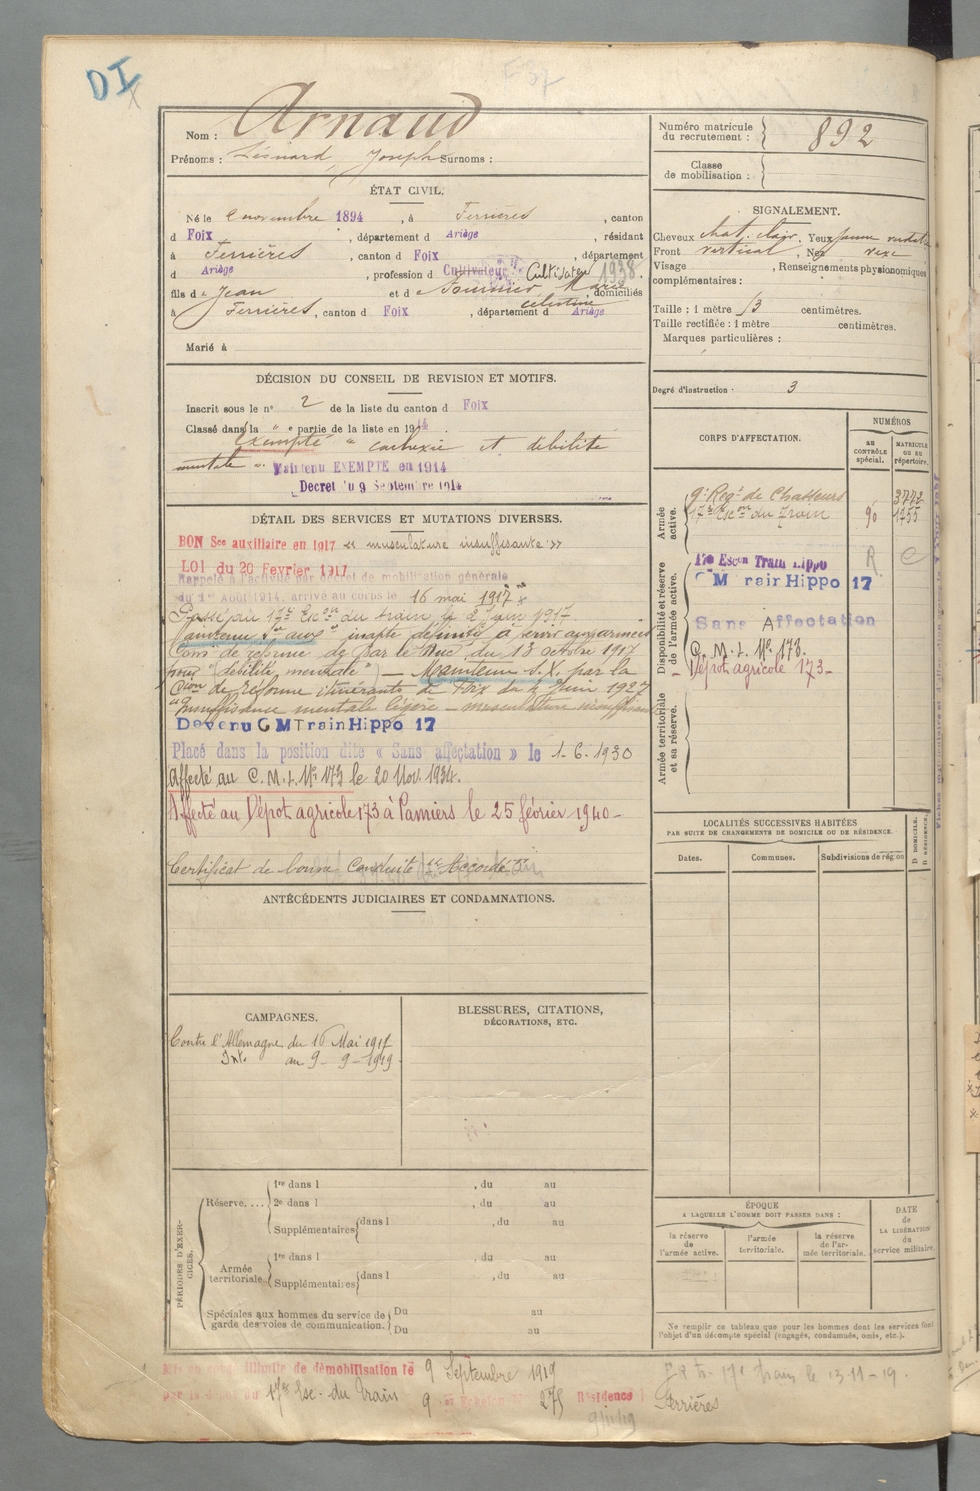 DI
Nom : Arnaud
Prénoms : Léonard, Joseph Surnoms :
Numéro matricule du recrutement : 892
Classe de mobilisation :
ÉTAT CIVIL.
Né le 2 novembre 1894, à Ferrières, canton
d Foix, département d Ariège, résidant
à Ferrières, canton d Foix, département
d Ariège, profession d Cultivateur Cultivateur 1938.
fils de Jean et de Marie Célestine, domiciliés
à Ferrières, canton d Foix, département d Ariège
Marié à
SIGNALEMENT.
Cheveux chat. clair, Yeux
Front vertical, Nez vexe
Visage , Renseignements physionomiques
complémentaires :
Taille : 1 mètre 53 centimètres.
Taille rectifiée : 1 mètre centimètres.
Marques particulières :
Degré d'instruction : 3
DÉCISION DU CONSEIL DE REVISION ET MOTIFS.
Inscrit sous le n° 2 de la liste du canton d Foix
Classé dans la " e partie de la liste en 1914.
Exempté " cachexie et débilité
mentale ". Maintenu EXEMPTÉ en 1914
Decret du 9 Septembre 1914
CORPS D'AFFECTATION.
NUMÉROS
AU CONTRÔLE spécial.
MATRICULE OU AU répertoire.
Armée active.
9e Regt de Chasseurs 3772
17e Escon du Train 90 1755
Disponibilité et réserve de l'armée active.
17e Escon Train Hippo R C
C M Train Hippo 17
Sans Affectation
C. M. I. No 173.
Dépot agricole 173-
Armée territoriale et sa réserve.
DÉTAIL DES SERVICES ET MUTATIONS DIVERSES.
BON Sce auxiliaire en 1917 « musculature insuffisante »
LOI du 20 Fevrier 1917
Rappelé à l'activité par décret de mobilisation générale
du 1er Août 1914, arrivé au corps le 16 mai 1917
Passé au 17e Escon du train le 2 Juin 1917
Maintenu Sce aux " inapte définitif à servir aux armées
Comn de réforme de par le du 13 octobre 1917
pour "débilité mentale") — Maintenu S.X. par la
Cion de Réforme itinérante de Foix du 4 Juin 1927
"Insuffisance mentale légère — musculature insuffisante
Devenu C M Train Hippo 17
Placé dans la position dite « Sans affectation » le 1-6-1930
Affecté au C. M. I. No 173 le 20 Nov. 1934.
Affecté au Dépot agricole 173 à Pamiers le 25 février 1940-
Certificat de bonne Conduite "Accordé"
ANTÉCÉDENTS JUDICIAIRES ET CONDAMNATIONS.
LOCALITÉS SUCCESSIVES HABITÉES
PAR SUITE DE CHANGEMENTS DE DOMICILE OU DE RÉSIDENCE.
Dates. Communes. Subdivisions de région D DOMICILE. R RÉSIDENCE.
CAMPAGNES.
Contre l'Allemagne du 16 Mai 1917
Int. au 9 - 9 - 1919
BLESSURES, CITATIONS,
DÉCORATIONS, ETC.
PÉRIODES D'EXERCICES.
Réserve.... 1re dans l , du au
2e dans l , du au
Supplémentaires dans l , du au
Armée territoriale. 1re dans l , du au
Supplémentaires dans l , du au
Spéciales aux hommes du service de garde des voies de communication. Du au
Du au
ÉPOQUE
A LAQUELLE L'HOMME DOIT PASSER DANS :
la réserve de l'armée active.
l'armée territoriale.
la réserve de l'armée territoriale.
DATE de LA LIBÉRATION du service militaire.
Ne remplir ce tableau que pour les hommes dont les services font
l'objet d'un décompte spécial (engagés, condamnés, omis, etc.).
Mis en congé illimité de démobilisation le 9 Septembre 1919
par le dépôt du 17e Esc. du Train 9 e Echelon No 275 Résidence : Ferrières
9/11/19
17e train le 13-11-19.